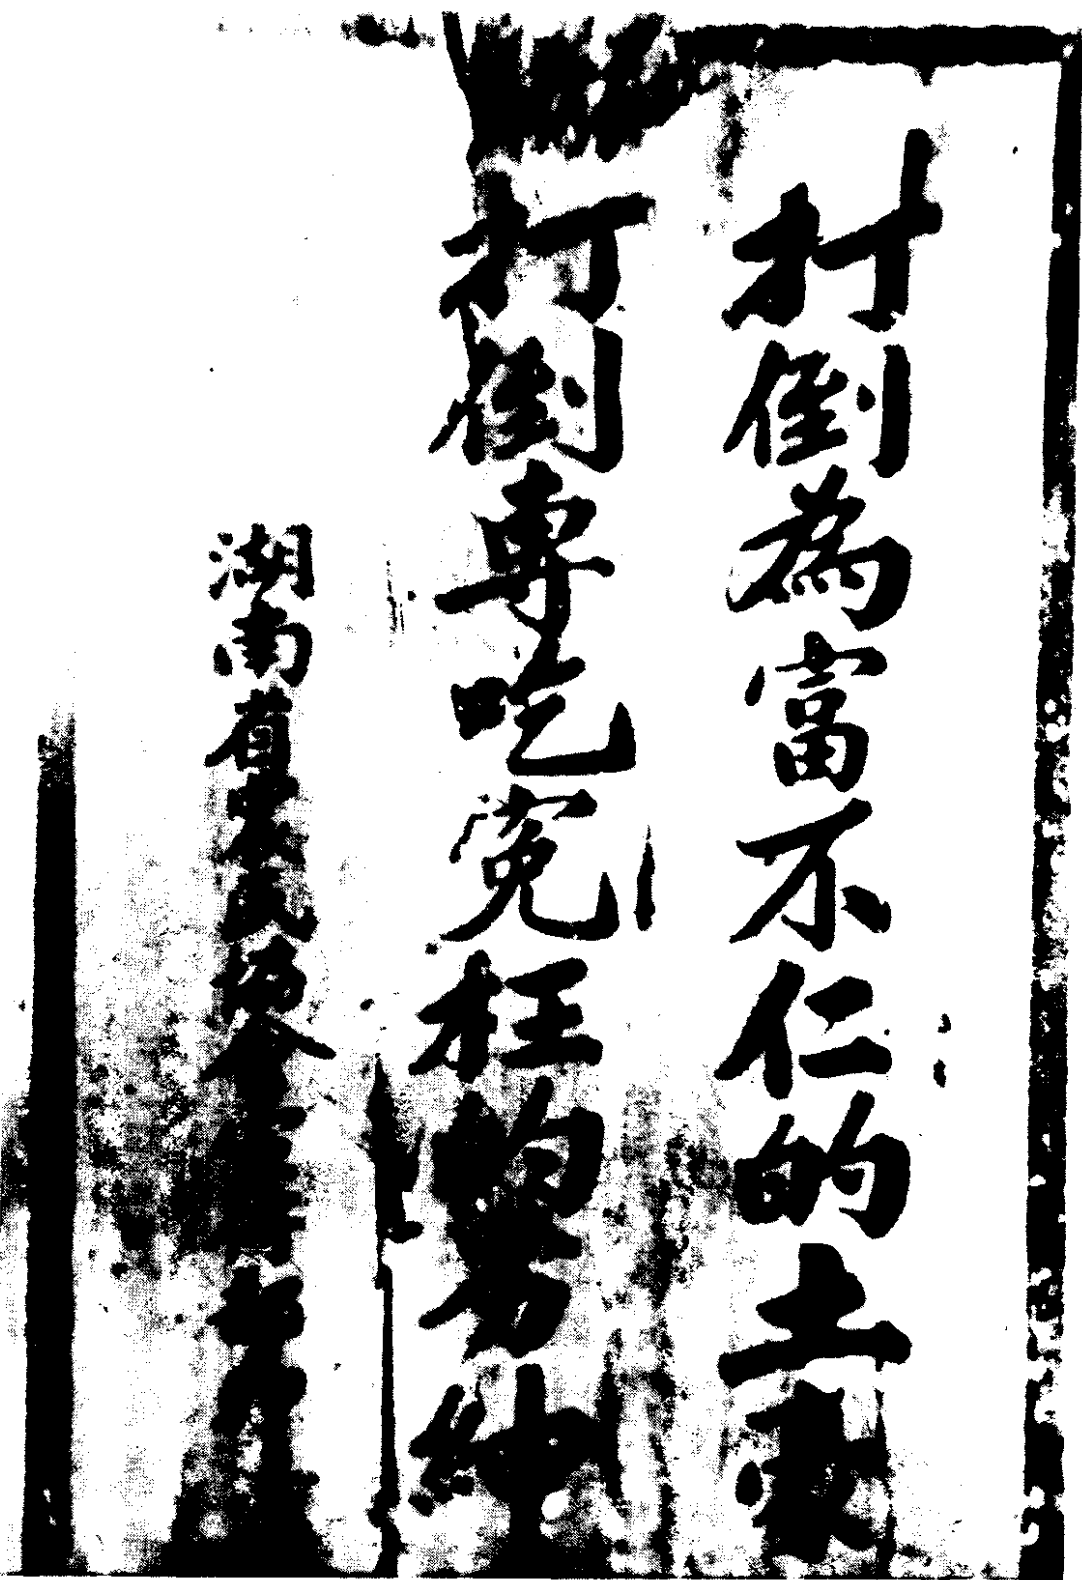 打倒為富不仁的土豪
打倒專吃冤枉的劣紳
湖南省農民協會